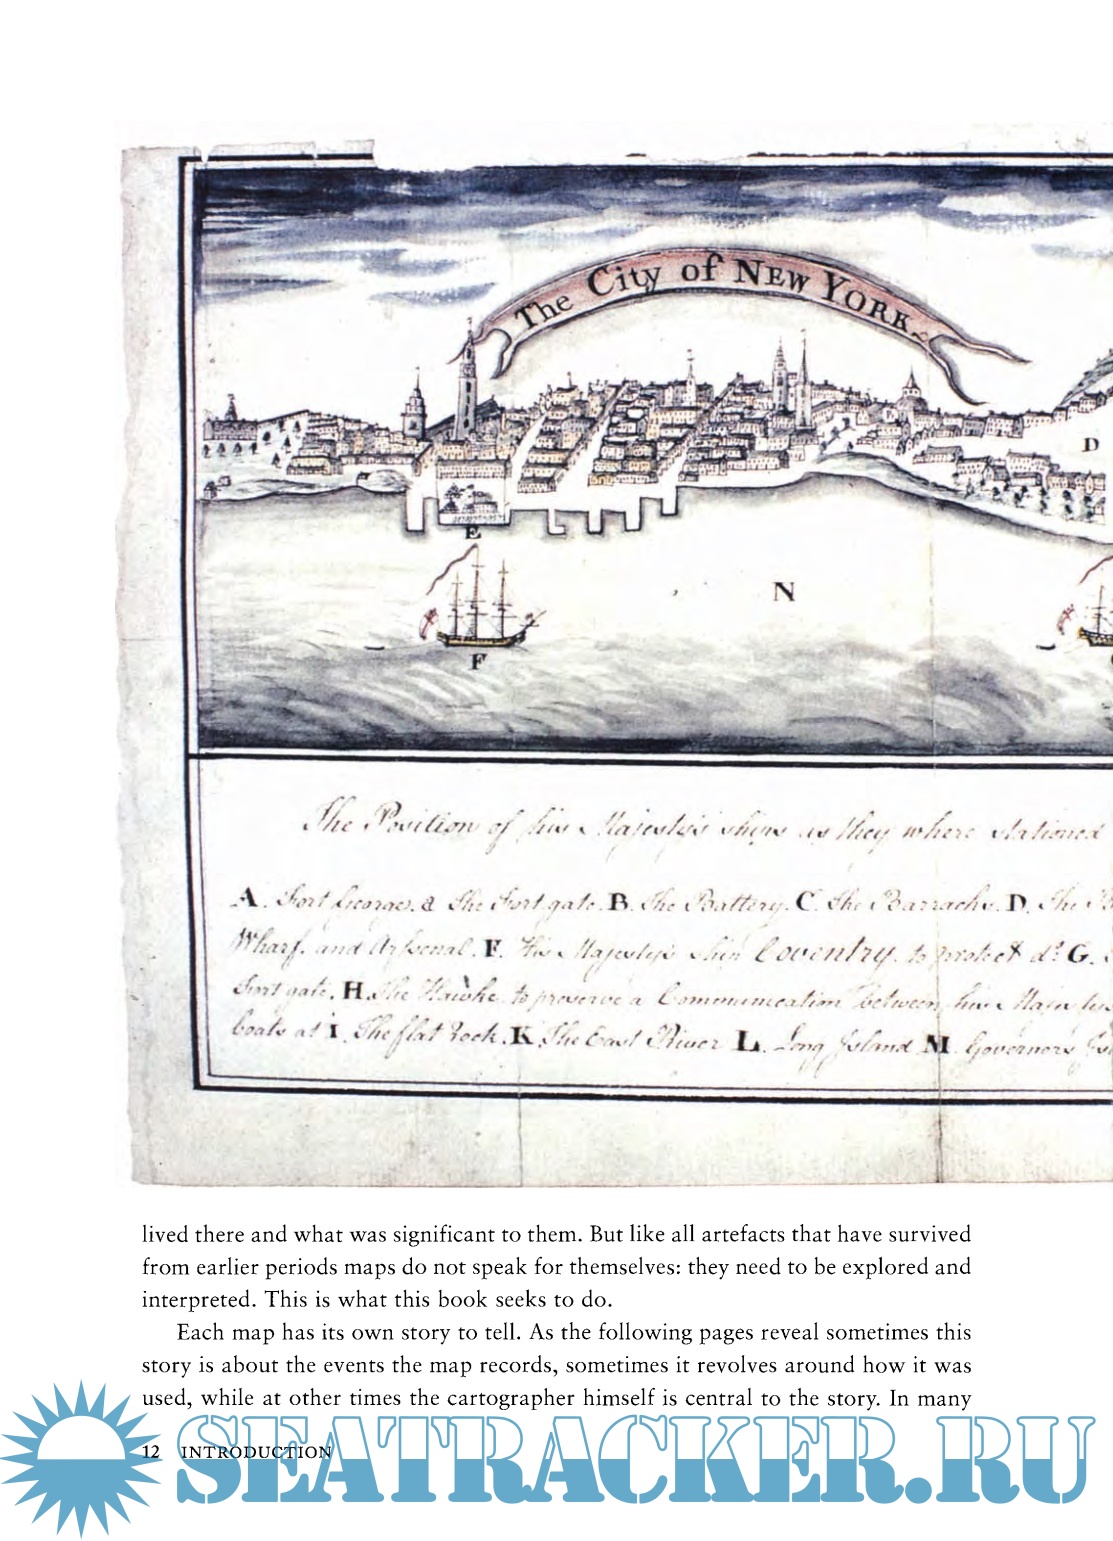 The City of NEW YORK.
D
E
N
F
The Position of his Majesty's ships as they where stationed
A. Fort George. a The Fort gate. B. The Battery. C. The Barracks. D. The
Wharf. and Arsenal. F. His Majesty's ship Coventry. to protect do. G.
Fort gate. H. The Hawke. to preserve a Communication between his
boats at I. The flat Rock. K. The East River L. Long Island M. Governors
lived there and what was significant to them. But like all artefacts that have survived
from earlier periods maps do not speak for themselves: they need to be explored and
interpreted. This is what this book seeks to do.
Each map has its own story to tell. As the following pages reveal sometimes this
story is about the events the map records, sometimes it revolves around how it was
used, while at other times the cartographer himself is central to the story. In many
12 INTRODUCTION
SEATRACKER.RU